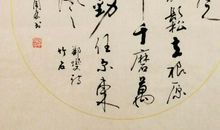 鬆立根原
千磨萬
勁任尔東
鄭燮詩
竹石